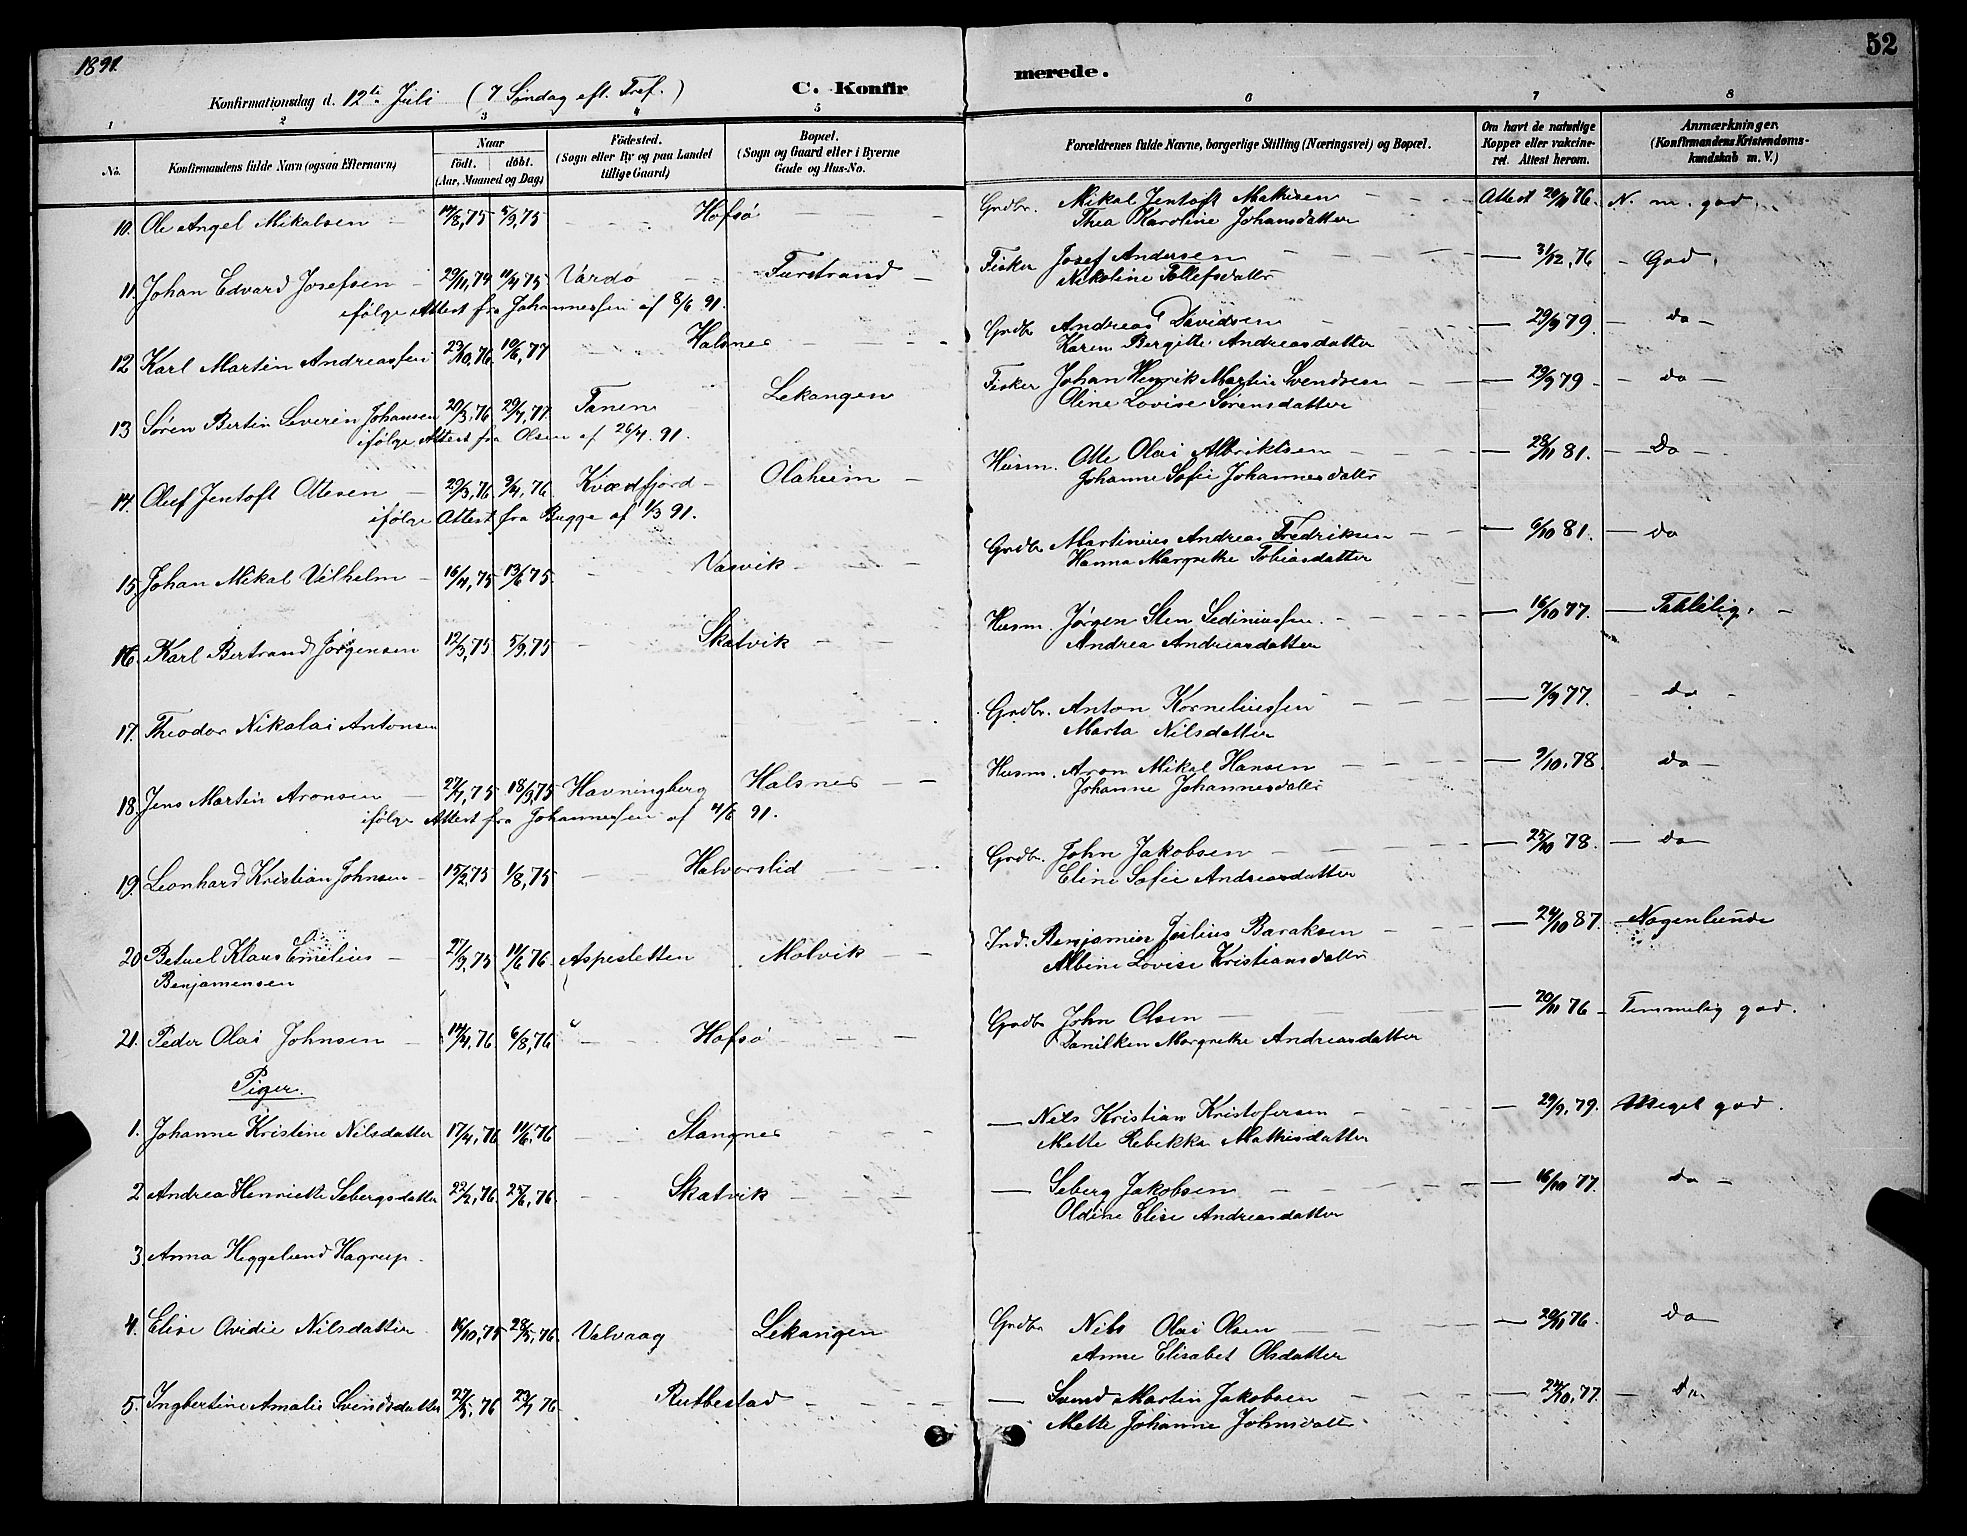 1891.
52
Konfirmationsdag d. 12te Juli (7 Søndag eft. Tref.) C. Konfirmerede.
1 2 3 4 5 6 7 8
No. Konfirmandens fulde Navn (ogsaa Efternavn) Naar født. døbt. (Aar, Maaned og Dag) Födested. (Sogn eller By og paa Landet tillige Gaard) Bopæl. (Sogn og Gaard eller i Byerne Gade og Hus-No. Forældrenes fulde Navne, borgerlige Stilling (Næringsvei) og Bopæl. Om havt de naturlige Kopper eller vaccineret. Attest herom. Anmærkninger. (Konfirmandens Kristendomskundskab m. V.)
10. Ole Angel Mikalsen 14/8,75 5/9,75 Hofsö Grdbr. Mikal Jentoft Mathisen Attest 20/11 76. N. m. god.
Thea Karoline Johansdatter
11. Johan Edvard Josefsen 29/11,74 11/4 75 Vardö Furstrand Fisker Josef Andersen 31/12,76 God.
Nikoline Tollefsdatter
ifølge Attest fra Johannessen af 8/6 91.
12 Karl Martin Andreassen 23/10,76 10/6,77 Halsnes Grdbr Andreas Davidsen 29/9 79. do
Karen Bergitte Andreasdatter
13 Søren Bertin Severin Johansen 20/3,76 29/7,77 Tanen Lekangen Fisker Johan Henrik Martin Svendsen 29/9 79 do
Oline Lovise Sørensdatter
ifølge Attest fra Olsen af 26/4. 91.
14. Oluf Jentoft Ottesen 29/3,76 9/4,76 Kvædfjord Olaheim Husm. Otte Olai Albriktsen 28/11 81. Do
Johanne Sofie Johannesdattr
ifølge Attest fra Bugge af 1/3 91.
15. Johan Mikal Vilhelm 16/4,75 13/6 75 Vasvik Grdbr Martinius Andreas Fredriksen 6/10 81. do
Hanna Margrethe Tobiasdatter
16. Karl Bertrand Jørgensen 12/3,75 5/9,75 Skatvik Husm. Jørgen Sten Sediniussen 16/10 77. Taalelig.
Andrea Andreasdatter
17. Theodor Nikolai Antonsen Grdbr. Anton Korneliussen 7/9 77. do
Marta Nilsdatter
18. Jens Martin Aronsen 27/7,75 18/9,75 Havningberg Halsnes Husm. Aron Mikal Hansen 9/10,78. do
Johanne Johannesdattr
ifølge Attest fra Johannessen af 4/6 91.
19. Leonhard Kristian Johnsen 15/2,75 1/8,75 Halvorslid Grdbr. John Jakobsen 25/10 78. do
Eline Sofie Andreasdatter
20 Betuel Klaus Emelius 27/9,75 11/6 76 Aspesletten Molvik Ind. Benjamin Julius Baraksen 24/10 87. Nogenlunde
Benjamensen Albine Lovise Kristiansdattr
21. Peder Olai Johnsen 14/4,76 6/8,76 Hofsö Grdbr John Olsen 20/11 76 Temmelig god.
Danilken Margrethe Andreasdatter
Piger.
1. Johanne Kristine Nilsdatter 17/4,76 11/6,76 Stangnes Nils Kristian Kristofersen 29/9,79. Meget god.
Mette Rebekka Mathisdatter
2 Andrea Henriette Sebergsdatter 22/2,76. 25/6,76 Skatvik Seberg Jakobsen 16/10 77. do
Oldine Elise Andreasdatter
3. Anna Heggelund Hagrup
4. Elise Ovidie Nilsdatter 16/10,75 28/5,76 Valvaag Lekangen Grdbr Nils Olai Olsen 20/11 76. do
Anne Elisabet Olsdatter
5. Ingbertine Amalie Svendsdatter 27/5,76 23/7 76 Rutbestad Svend Martin Jakobsen 24/10,77. Do
Mette Johanne Johnsdattr